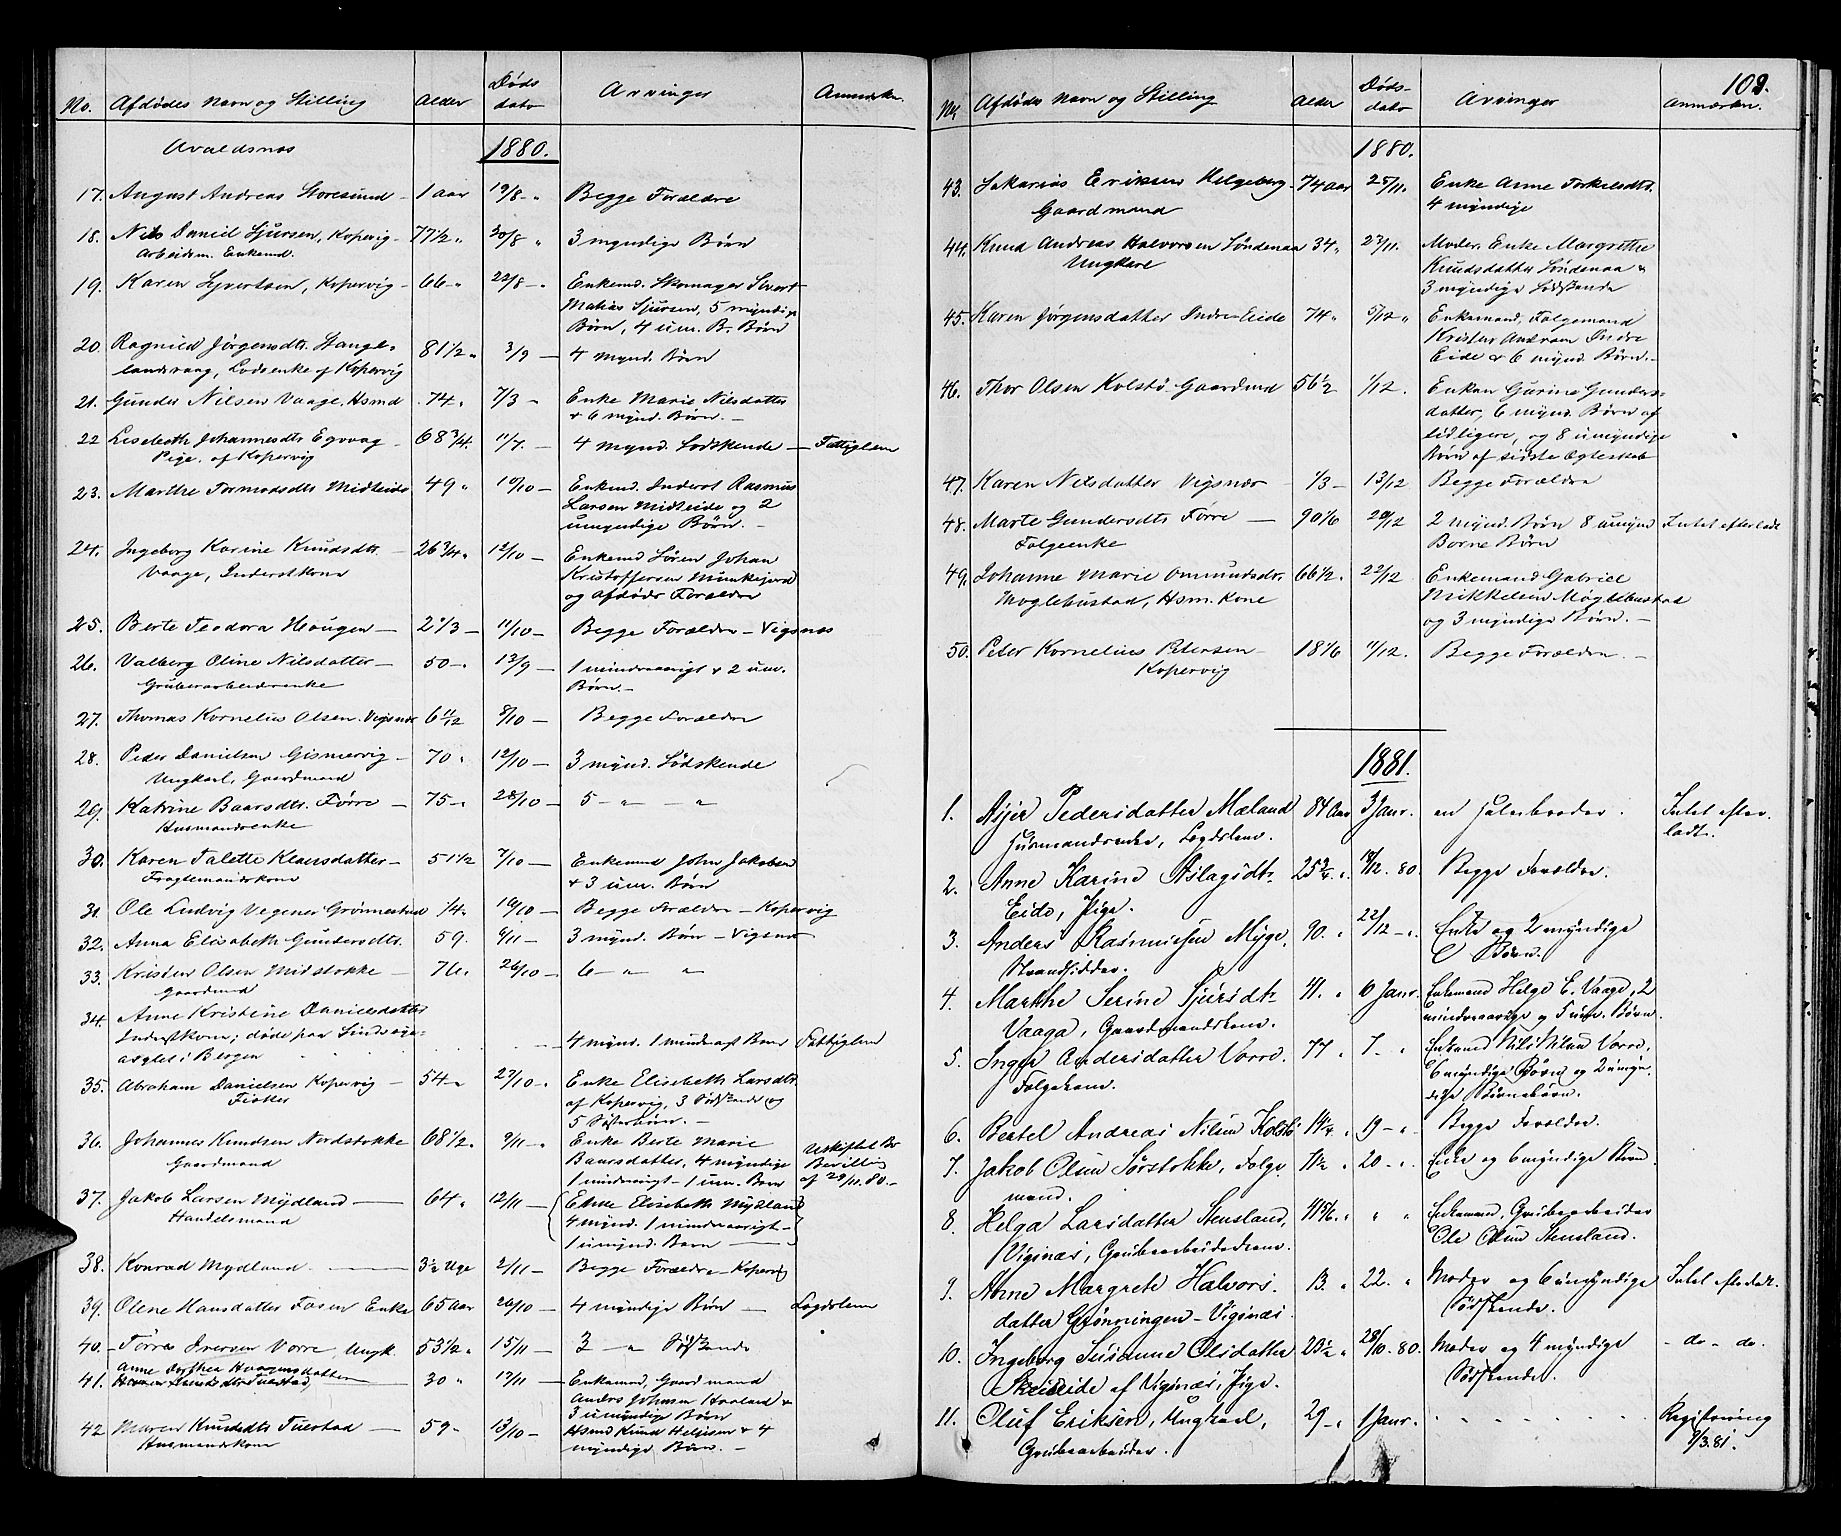 No. Afdødes navn og Stilling Alder Døds dato Arvinger Anmerkn.
Avaldsnes 1880.
17. August Andreas Storesund 1 aar 19/8 - " Begge Forældre
18. Nils Daniel Sjursen, Kopervig 77 1/2 " 20/8 " 3 myndige Børn
Arbeidsm. Enkemd.
19. Karen Syvertsen, Kopervig 66 - " 22/8 - " Enkemd. Skomager Sivert
Matias Sjursen, 5 myndige
Børn, 4 um. B. Børn
20. Ragnild Jørgensdtr. Stange- 81 1/2 " 3/9 — 4 mynd. Børn
landsvaag, Lodsenke af Kopervig
21. Gunder Nilsen Vaage, Hsmd 74 " 7/3 - Enke Marie Nilsdatter
+ 6 mynd. Børn. -
22 Lisebeth Johannesdtr Egvaag 68 3/4. 11/7. — 4 mynd. Sødskende — Fattiglem
Pige. af Kopervig
23. Marthe Tormodsdtr Midteide 49 " 10/10 — Enkemd. Inderst Rasmus
Larsen Midteide og 2
umyndige Børn. -
24. Ingeborg Karine Knudsdtr. 26 3/4 " 12/10 — Enkemd Søren Johan
Vaage, Inderstkone Kristoffersen Munkejord
og afdødes Forældre
25. Berte Teodora Haugen — 2 1/3 — 11/10 — Begge Forældre - Vigsnes
26. Valberg Oline Nilsdatter — 50 - " 13/9 — 1 mindreaarigt + 2 um.
Grubearbeiderenke Børn. -
27. Thomas Kornelius Olsen. Vigsnes 6 11/12 8/10 — Begge Forældre
28. Peder Danielsen Gismervig — 70 " 12/10 — 3 mynd. Sødskende
Ungkarl, Gaardmand
29. Katrine Baarsdtr. Førre — 75 - " 28/10 — 5 - " "
Husmandsenke
30. Karen Talette Klausdatter — 51 1/2 7/10 — Enkemd John Jakobsen
Fragtemandskone + 3 um. Børn
31. Ole Ludvig Vegener Grønnestad 1/4 " 16/10 — Begge Forældre — Kopervig
32. Anna Elisabeth Gundersdtr. 59. 9/11 — 3 mynd. Børn - Vigsnes
33. Kristen Olsen Midstokke — 76. 26/10 — 6 — " "
Gaardmd
34. Anne Kristine Danielsdatter
Inderstkone; døde paa Sindssyge-
asylet i Bergen — 4 mynd. 1 mindreagt Børn Fattiglem
35. Abraham Danielsen Kopervig — 54 " 27/10 - " Enke Elisebeth Larsdtr.
Fisker af Kopervig, 3 Sødskende og
5 Søsterbørn. -
36. Johannes Knudsen Nordstokke 68 1/2 " 9/11 - " Enke Berte Marie Uskiftet Bo
Gaardmand Baarsdatter, 4 myndige Bevilling
1 mindreagt - 1 um. Børn af 29/11. 80. -
37. Jakob Larsen Mydland — 64 " 12/11 — Enke Elisebeth Mydland
Handelsmand 4 mynd. 1 mindreaarigt -
1 umynd. Barn —
38. Konrad Mydland. — 3 1/2 Uge 2/11 — Begge Forældre - Kopervig
39. Olene Hansdatter Fosen Enke 65 aar 26/10 — 4 myndige Børn — Lægdslem
40. Tørres Iversen Vorre, Ungk. 53 1/2 " 15/11 — 3 — " Sødskende
Anne Dorthea Haagensdatter
41. — 30 " 17/11 Enkemd, Gaardmand
Anders Johnsen Haaland +
3 umyndige Børn
42 Maren Knudsdtr Tuestad — 59 - 13/10 — Hsmd Knud Heljesen + 4
Husmandskone myndige Børn. -
109.
Nr Afdødes navn og Stilling Alder Døds- dato Arvinger Anmærkn.
1880.
43. Sakarias Eriksen Helgeberg 74 aar 25/11. Enke Anne Torkelsdtr.
Gaardmand 4 myndige
44. Knud Andreas Halvorsen Søndenaa 34 " 27/11. Moder, Enke Margrethe
Ungkare Knudsdatter Søndenaa +
3 myndige Sødskende
45. Karen Jørgensdatter Indre-Eide 74 " 5/12 " Enkemand, Folgemand
Kristen Andersen Indre
Eide + 6 mynd. Børn. -
46. Thor Olsen Kolstø Gaardmd 56 1/2 1/12. Enken Gurine Gunders-
datter, 6 mynd. Børn af
tidligere, og 8 umyndige
Børn af sidste Egteskab
47. Karen Nilsdatter Vigsnes 1/3 — 13/12 Begge Forældre
48. Marte Gundersdtr Førre — 90 1/6 20/12 2 mynd. Børn 8 umynd Intet efterladt
Folgeenke Børne Børn
49. Johanne Marie Omundsdtr. 66 1/2 " 22/12 Enkemand Gabriel
Møglebustad, Hsm. Kone Mikkelsen Møglebustad
og 3 myndige Børn. -
50. Peter Kornelius Petersen 18 1/6 11/12. Begge Forældre. -
Kopervig
1881.
1. Asjer Pedersdatter Mæland 84 Aar 3 Janr. en halvbroder. Intet efter-
Husmandsenke, Lægdslem. ladt.
2. Anne Karine Aslagsdtr 25 2/4 " 18/12. 80. Begge Forældre.
Eide, Pige.
3. Anders Rasmussen Myge, 90. " 22/12 - " Enke og 2 myndige
Strandsidder. Børn.
4. Marthe Serine Sjursdtr 41. " 6 Janr. Enkemand Helge E. Vaage, 2
Vaaga, Gaardmandskone. mindreaarige og 7 um. Børn.
5. Inger Andersdatter Vorre. 77 " 7 - " Enkemd Nils Nilsen Vorre,
Folgekone. 6 myndige Børn og 2 umyn-
dige Børnebørn.
6. Bertel Andreas Nilsen Kolstø 14 1/4 " 19 - " Begge Forældre.
7. Jakob Olsen Sørstokke, Folge- 71 1/2 " 20 - " Enke og 6 myndige Børn
mand.
8. Helga Larsdatter Stensland, 41 5/6. " " " Enkemand, Grubearbeider
Vigsnæs, Grubearbeiderkone. Ole Olsen Stensland.
9. Anne Margrete Halvors- 13 " 22. " Moder og 6 umyndige Intet efterladt.
datter Grønningen - Vigsnæs. Sødskende.
10. Ingeborg Susanne Olsdatter 20 1/2 " 28/10. 80. Moder og 4 myndige - do - do.
Skeiseide af Vigsnæs, Pige. Sødskende.
11. Oluf Eriksen, Ungkarl, 29 - " 1 Janr. - - - - - Registrering
Grubearbeider. 9/3. 81.